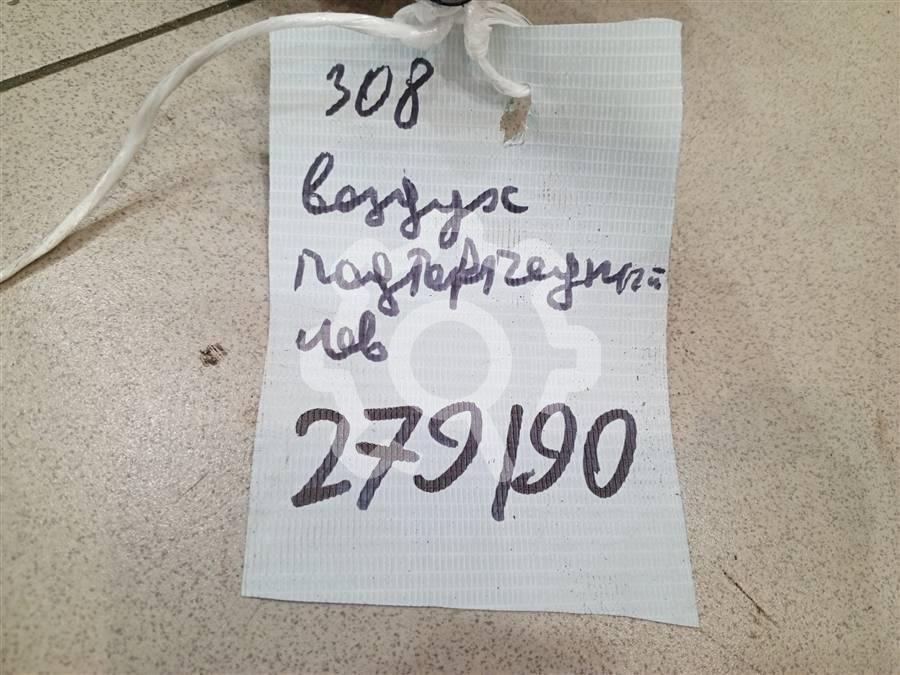 308
воздух
подторпедный
лев
279190